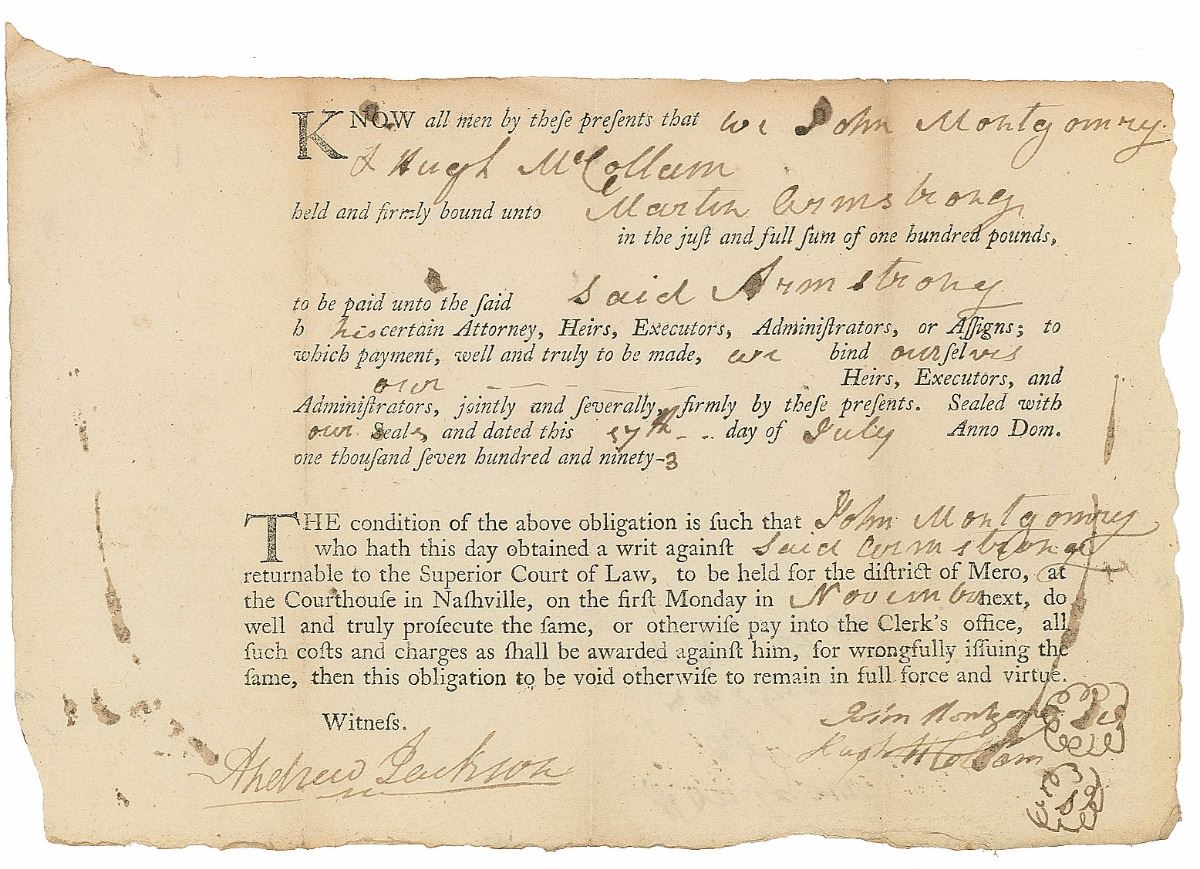 KNOW all men by theſe preſents that we John Montgomry
& Hugh McCollam
held and firmly bound unto Martin Armstrong
in the juſt and full ſum of one hundred pounds,
to be paid unto the ſaid Said Armstrong
h his certain Attorney, Heirs, Executors, Adminiſtrators, or Aſſigns; to
which payment, well and truly to be made, we bind ourſelves
our Heirs, Executors, and
Adminiſtrators, jointly and ſeverally, firmly by theſe preſents. Sealed with
our Seals, and dated this 17th day of July Anno Dom.
one thouſand ſeven hundred and ninety-3
THE condition of the above obligation is ſuch that John Montgomry
who hath this day obtained a writ againſt Said Armstrong
returnable to the Superior Court of Law, to be held for the diſtrict of Mero, at
the Courthouſe in Naſhville, on the firſt Monday in November next, do
well and truly proſecute the ſame, or otherwiſe pay into the Clerk's office, all
ſuch coſts and charges as ſhall be awarded againſt him, for wrongfully iſſuing the
ſame, then this obligation to be void otherwiſe to remain in full force and virtue.
Witneſs.
John Montgomry
Andrew Jackson
Hugh McCollam